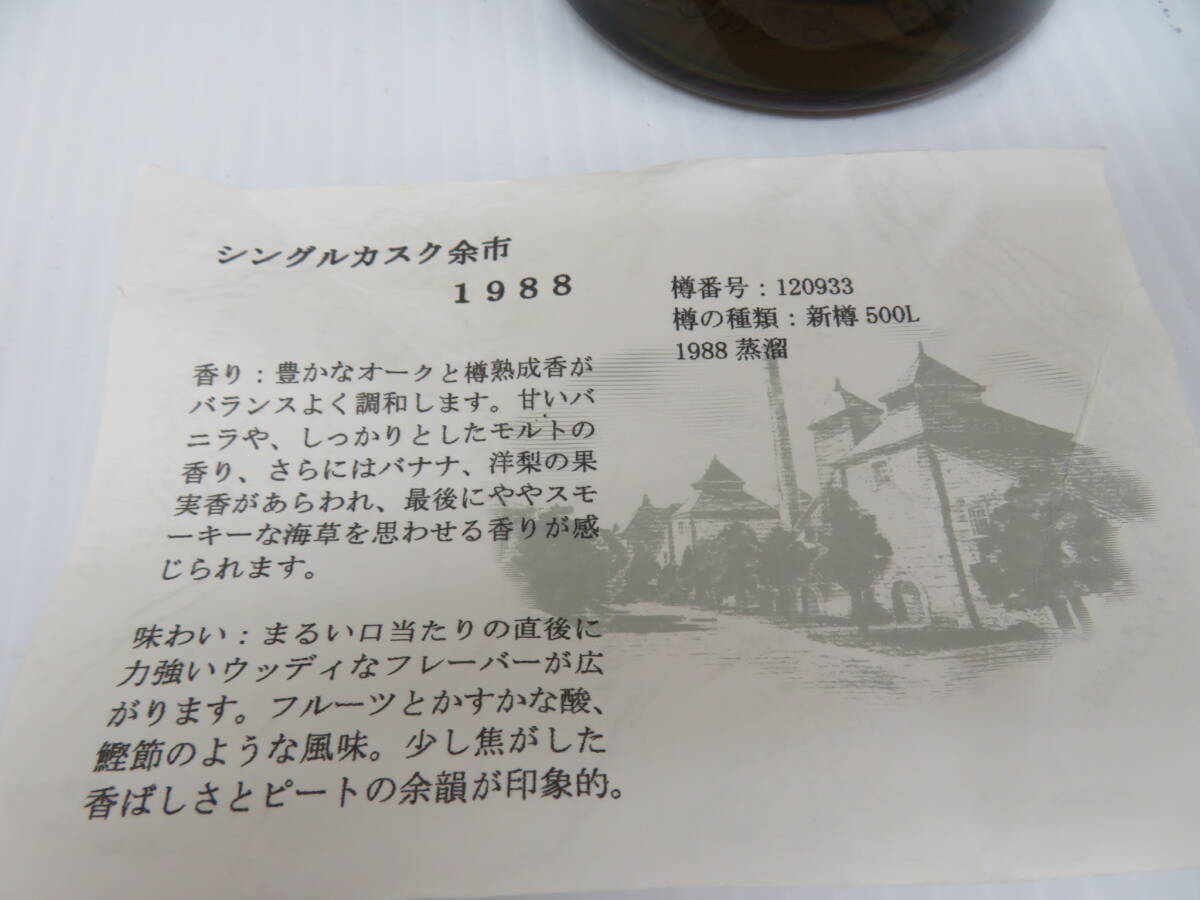 シングルカスク余市
1988
樽番号：120933
樽の種類：新樽 500L
1988 蒸溜
香り：豊かなオークと樽熟成香が
バランスよく調和します。甘いバ
ニラや、しっかりとしたモルトの
香り、さらにはバナナ、洋梨の果
実香があらわれ、最後にややスモ
ーキーな海草を思わせる香りが感
じられます。
味わい：まるい口当たりの直後に
力強いウッディなフレーバーが広
がります。フルーツとかすかな酸、
鰹節のような風味。少し焦がした
香ばしさとピートの余韻が印象的。